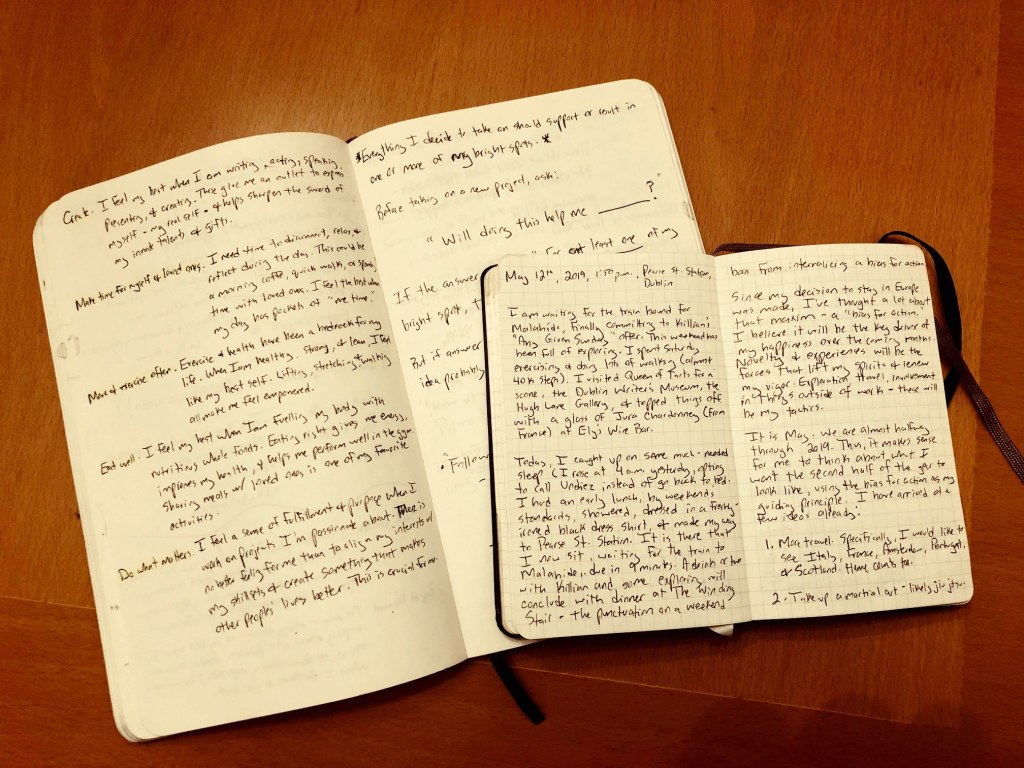 Create. I feel my best when I am writing, acting, speaking,
presenting, & creating. These give me an outlet to express
myself - my real self - & helps sharpen the sword of
my innate talents & gifts.
Make time for myself & loved ones. I need time to disconnect, relax, &
reflect during the day. This could be
a morning coffee, quick walk, or spending
time with loved ones. I feel the best when
my day has pockets of "me time."
Move & exercise often. Exercise & health have been a bedrock for my
life. When I am healthy, strong, & lean, I feel
like my best self. Lifting, stretching, & walking
all make me feel empowered.
Eat well. I feel my best when I am fuelling my body with
nutritious whole foods. Eating right gives me energy,
improves my health, & helps me perform well in the gym.
Sharing meals w/ loved ones is one of my favorite
activities.
Do what matters. I feel a sense of fulfillment & purpose when I
work on projects I'm passionate about. There is
no better feeling for me than to align my interests w/
my skillsets & create something that makes
other peoples' lives better. This is crucial for me.
*Everything I decide to take on should support or result in
one or more of my bright spots.*
Before taking on a new project, ask:
"Will doing this help me ______?"
If the answer
" for at least one of my
bright spot,
But if answer
idea probably
• "Follow
May 12th, 2019, 1:50 p.m., Pearse St. Station,
Dublin
I am waiting for the train bound for
Malahide, finally committing to Killian's
"Any Given Sunday" offer. This weekend has
been full of exploring. I spent Saturday
exercising & doing lots of walking (almost
40k steps). I visited Queen of Tarts for a
scone, the Dublin Writer's Museum, the
Hugh Lane Gallery, & topped things off
with a glass of Jura Chardonnay (from
France) at Ely's Wine Bar.
Today, I caught up on some much-needed
sleep (I rose at 4am yesterday, opting
to call Undiez instead of go back to bed.
I had an early lunch, by weekends
standards, showered, dressed in a freshly-
ironed black dress shirt, & made my way
to Pearse St. Station. It is there that
I now sit, waiting for the train to
Malahide, due in 9 minutes. A drink or two
with Killian and some exploring will
conclude with dinner at The Winding
Stair - the punctuation on a weekend
born from internalizing a bias for action
Since my decision to stay in Europe
was made, I've thought a lot about
that maxim - a "bias for action."
I believe it will be the key driver of
my happiness over the coming months.
Novelty & experiences will be the
forces that lift my spirits & renew
my vigor. Exploration, travel, involvement
in things outside of work - these will
be my tactics.
It is May. We are almost halfway
through 2019. Thus, it makes sense
for me to think about what I
want the second half of the year to
look like, using the bias for action as my
guiding principle. I have arrived at a
few ideas already:
1. More travel. Specifically, I would like to
see Italy, France, Amsterdam, Portugal,
or Scotland. Hany counts too.
2. Take up a martial art - likely jiu jitsu.